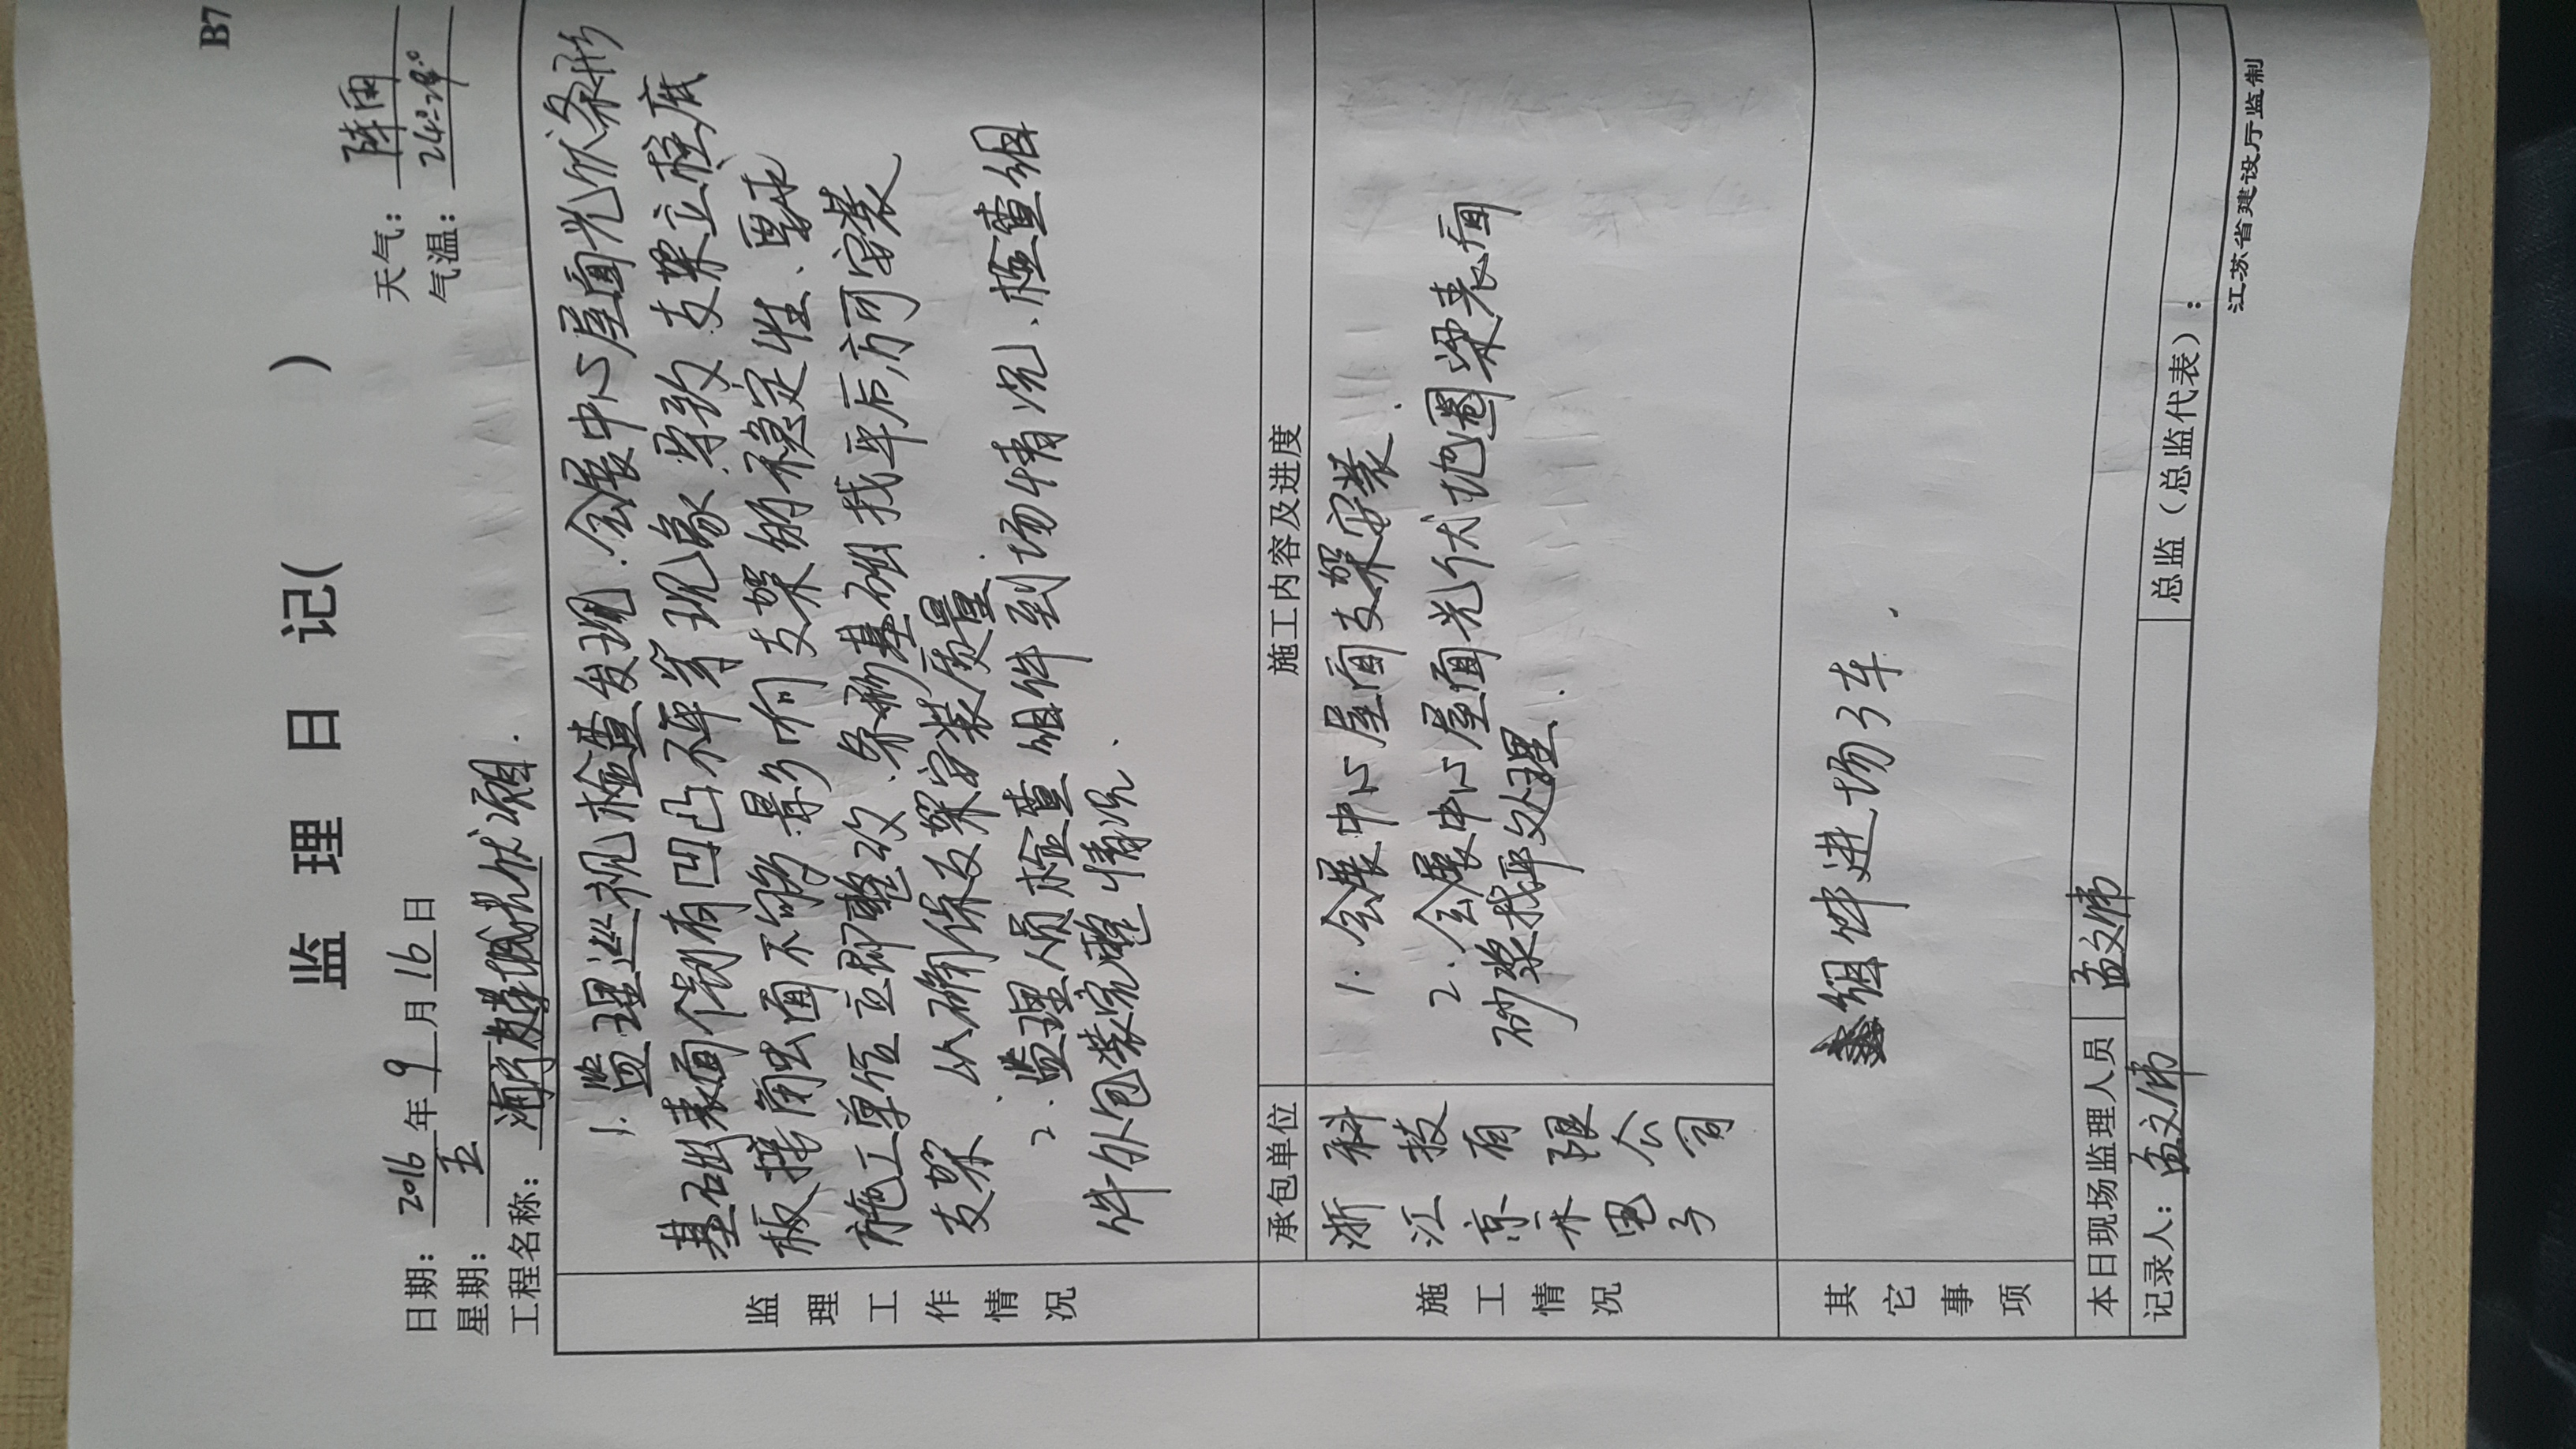 B7
监 理 日 记( )
日期: 2016 年 9 月 16 日 天气: 阵雨
星期: 五 气温: 24°-28°
工程名称: 海宁皮革城光伏项目.
监理工作情况
1. 监理巡视检查发现.会展中心屋面光伏条形
基础表面个别有凹凸不平等现象.导致支架立柱底
板接触面不够.影响支架的稳定性、要求
施工单位立即整改.条形基础找平后,方可安装
支架.以确保支架安装质量.
2. 监理人员检查组件到场情况、检查组
件外包装完整情况.
施工情况
承包单位 施工内容及进度
浙江京禾电子科技有限公司
1. 会展中心屋面支架安装.
2. 会展中心屋面光伏地圈梁表面
砂浆找平处理.
其它事项
组件进场3车.
本日现场监理人员 孟文伟
记录人: 孟文伟 总监(总监代表):
江苏省建设厅监制